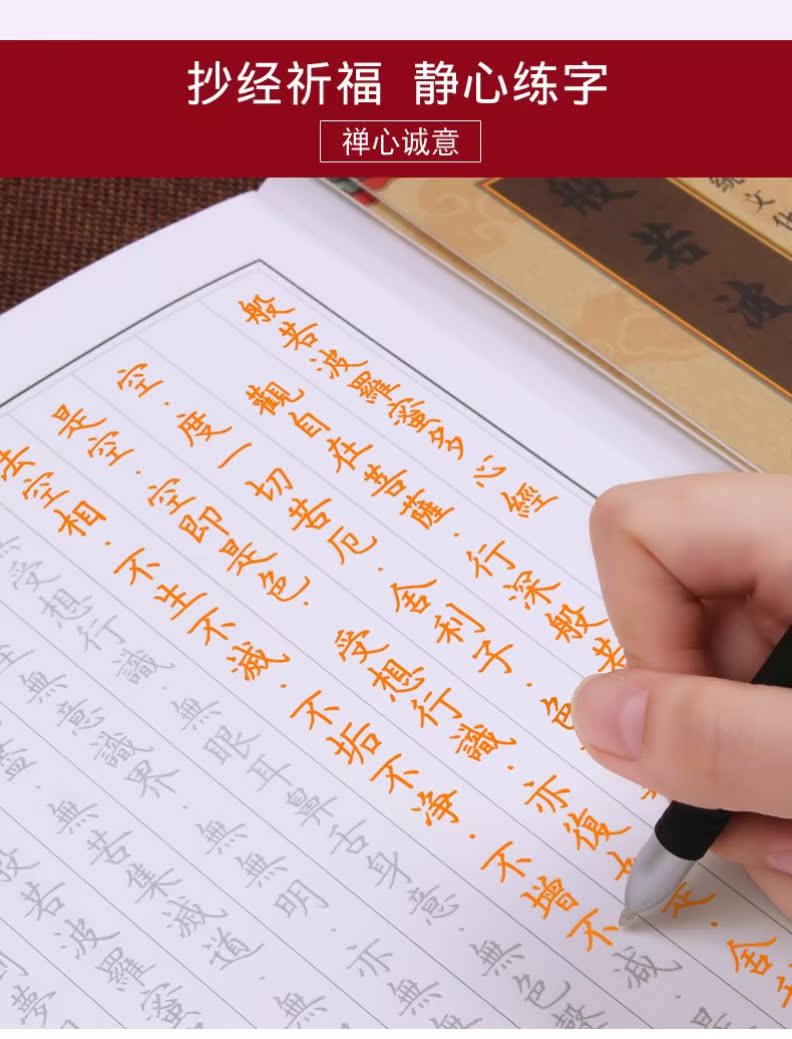 抄经祈福 静心练字
禅心诚意
统文化
般若波
般若波羅蜜多心經
觀自在菩薩．行深般若
空．度一切苦厄．舍利子．色
是空．空即是色．受想行識．亦復是．舍
空相．不生不滅．不垢不净．不增不減．是
受想行識．無眼耳鼻舌身意．無色聲
無意識界．無無明．亦無
無苦集滅道．無
若波羅蜜
夢